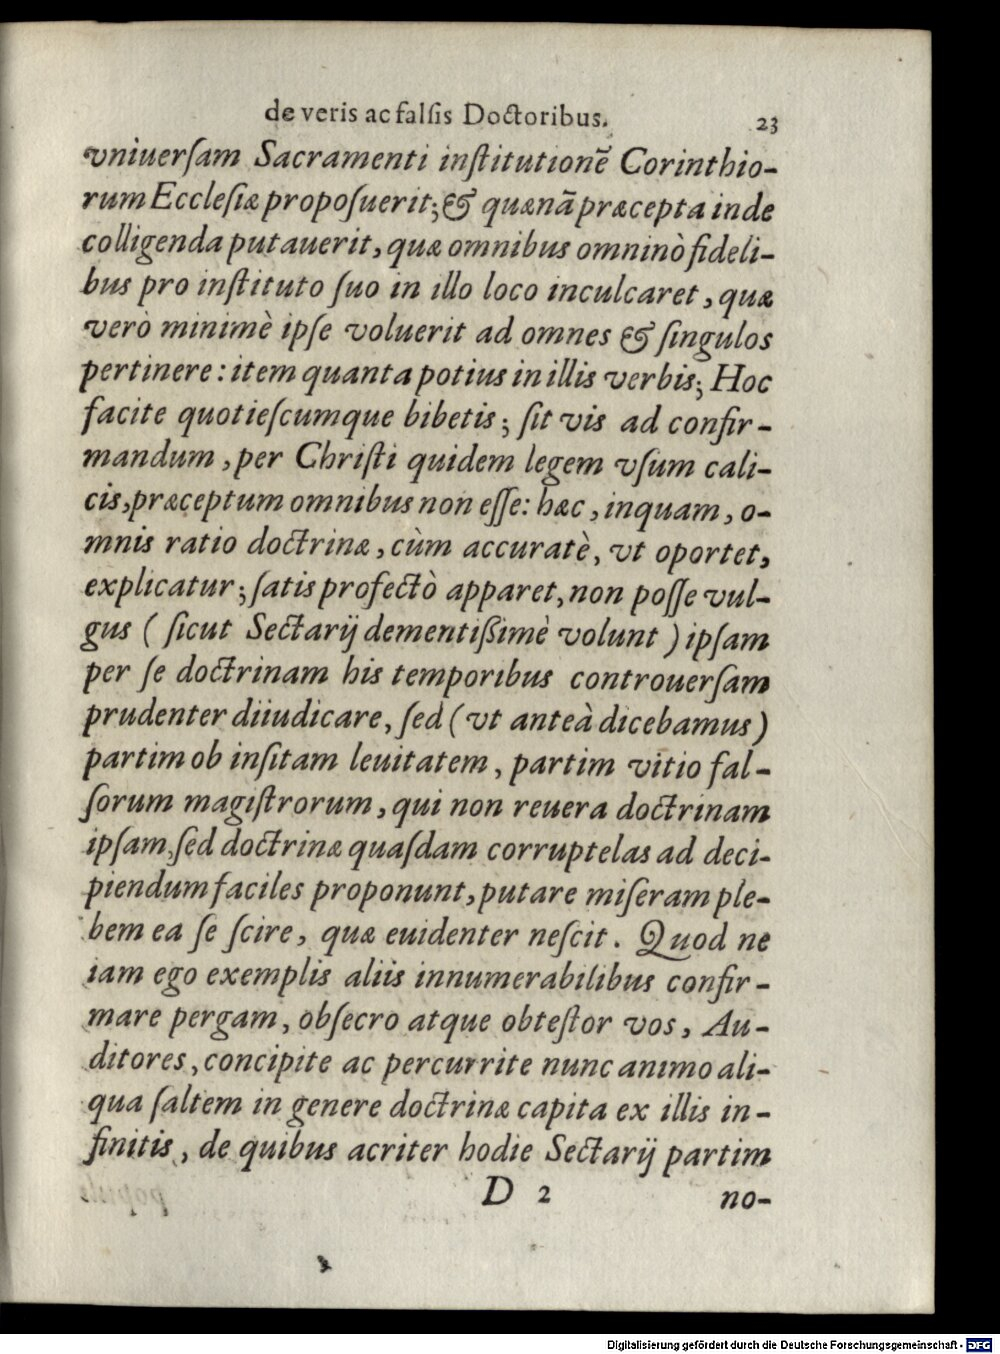 de veris ac falſis Doctoribus. 23
vniuerſam Sacramenti inſtitutionē Corinthio-
rum Eccleſiæ propoſuerit; & quænã præcepta inde
colligenda putauerit, quæ omnibus omninò fideli-
bus pro inſtituto ſuo in illo loco inculcaret, quæ
verò minimè ipſe voluerit ad omnes & ſingulos
pertinere: item quanta potius in illis verbis; Hoc
facite quotieſcumque bibetis; ſit vis ad confir-
mandum, per Chriſti quidem legem vſum cali-
cis, præceptum omnibus non eſſe: hæc, inquam, o-
mnis ratio doctrinæ, cùm accuratè, vt oportet,
explicatur; ſatis profectò apparet, non poſſe vul-
gus (ſicut Sectarij dementißimè volunt) ipſam
per ſe doctrinam his temporibus controuerſam
prudenter diiudicare, ſed (vt anteà dicebamus)
partim ob inſitam leuitatem, partim vitio fal-
ſorum magiſtrorum, qui non reuera doctrinam
ipſam, ſed doctrinæ quaſdam corruptelas ad deci-
piendum faciles proponunt, putare miſeram ple-
bem ea ſe ſcire, quæ euidenter neſcit. Quod ne
iam ego exemplis aliis innumerabilibus confir-
mare pergam, obſecro atque obteſtor vos, Au-
ditores, concipite ac percurrite nunc animo ali-
qua ſaltem in genere doctrinæ capita ex illis in-
finitis, de quibus acriter hodie Sectarij partim
D 2 no-
Digitalisierung gefördert durch die Deutsche Forschungsgemeinschaft - DFG